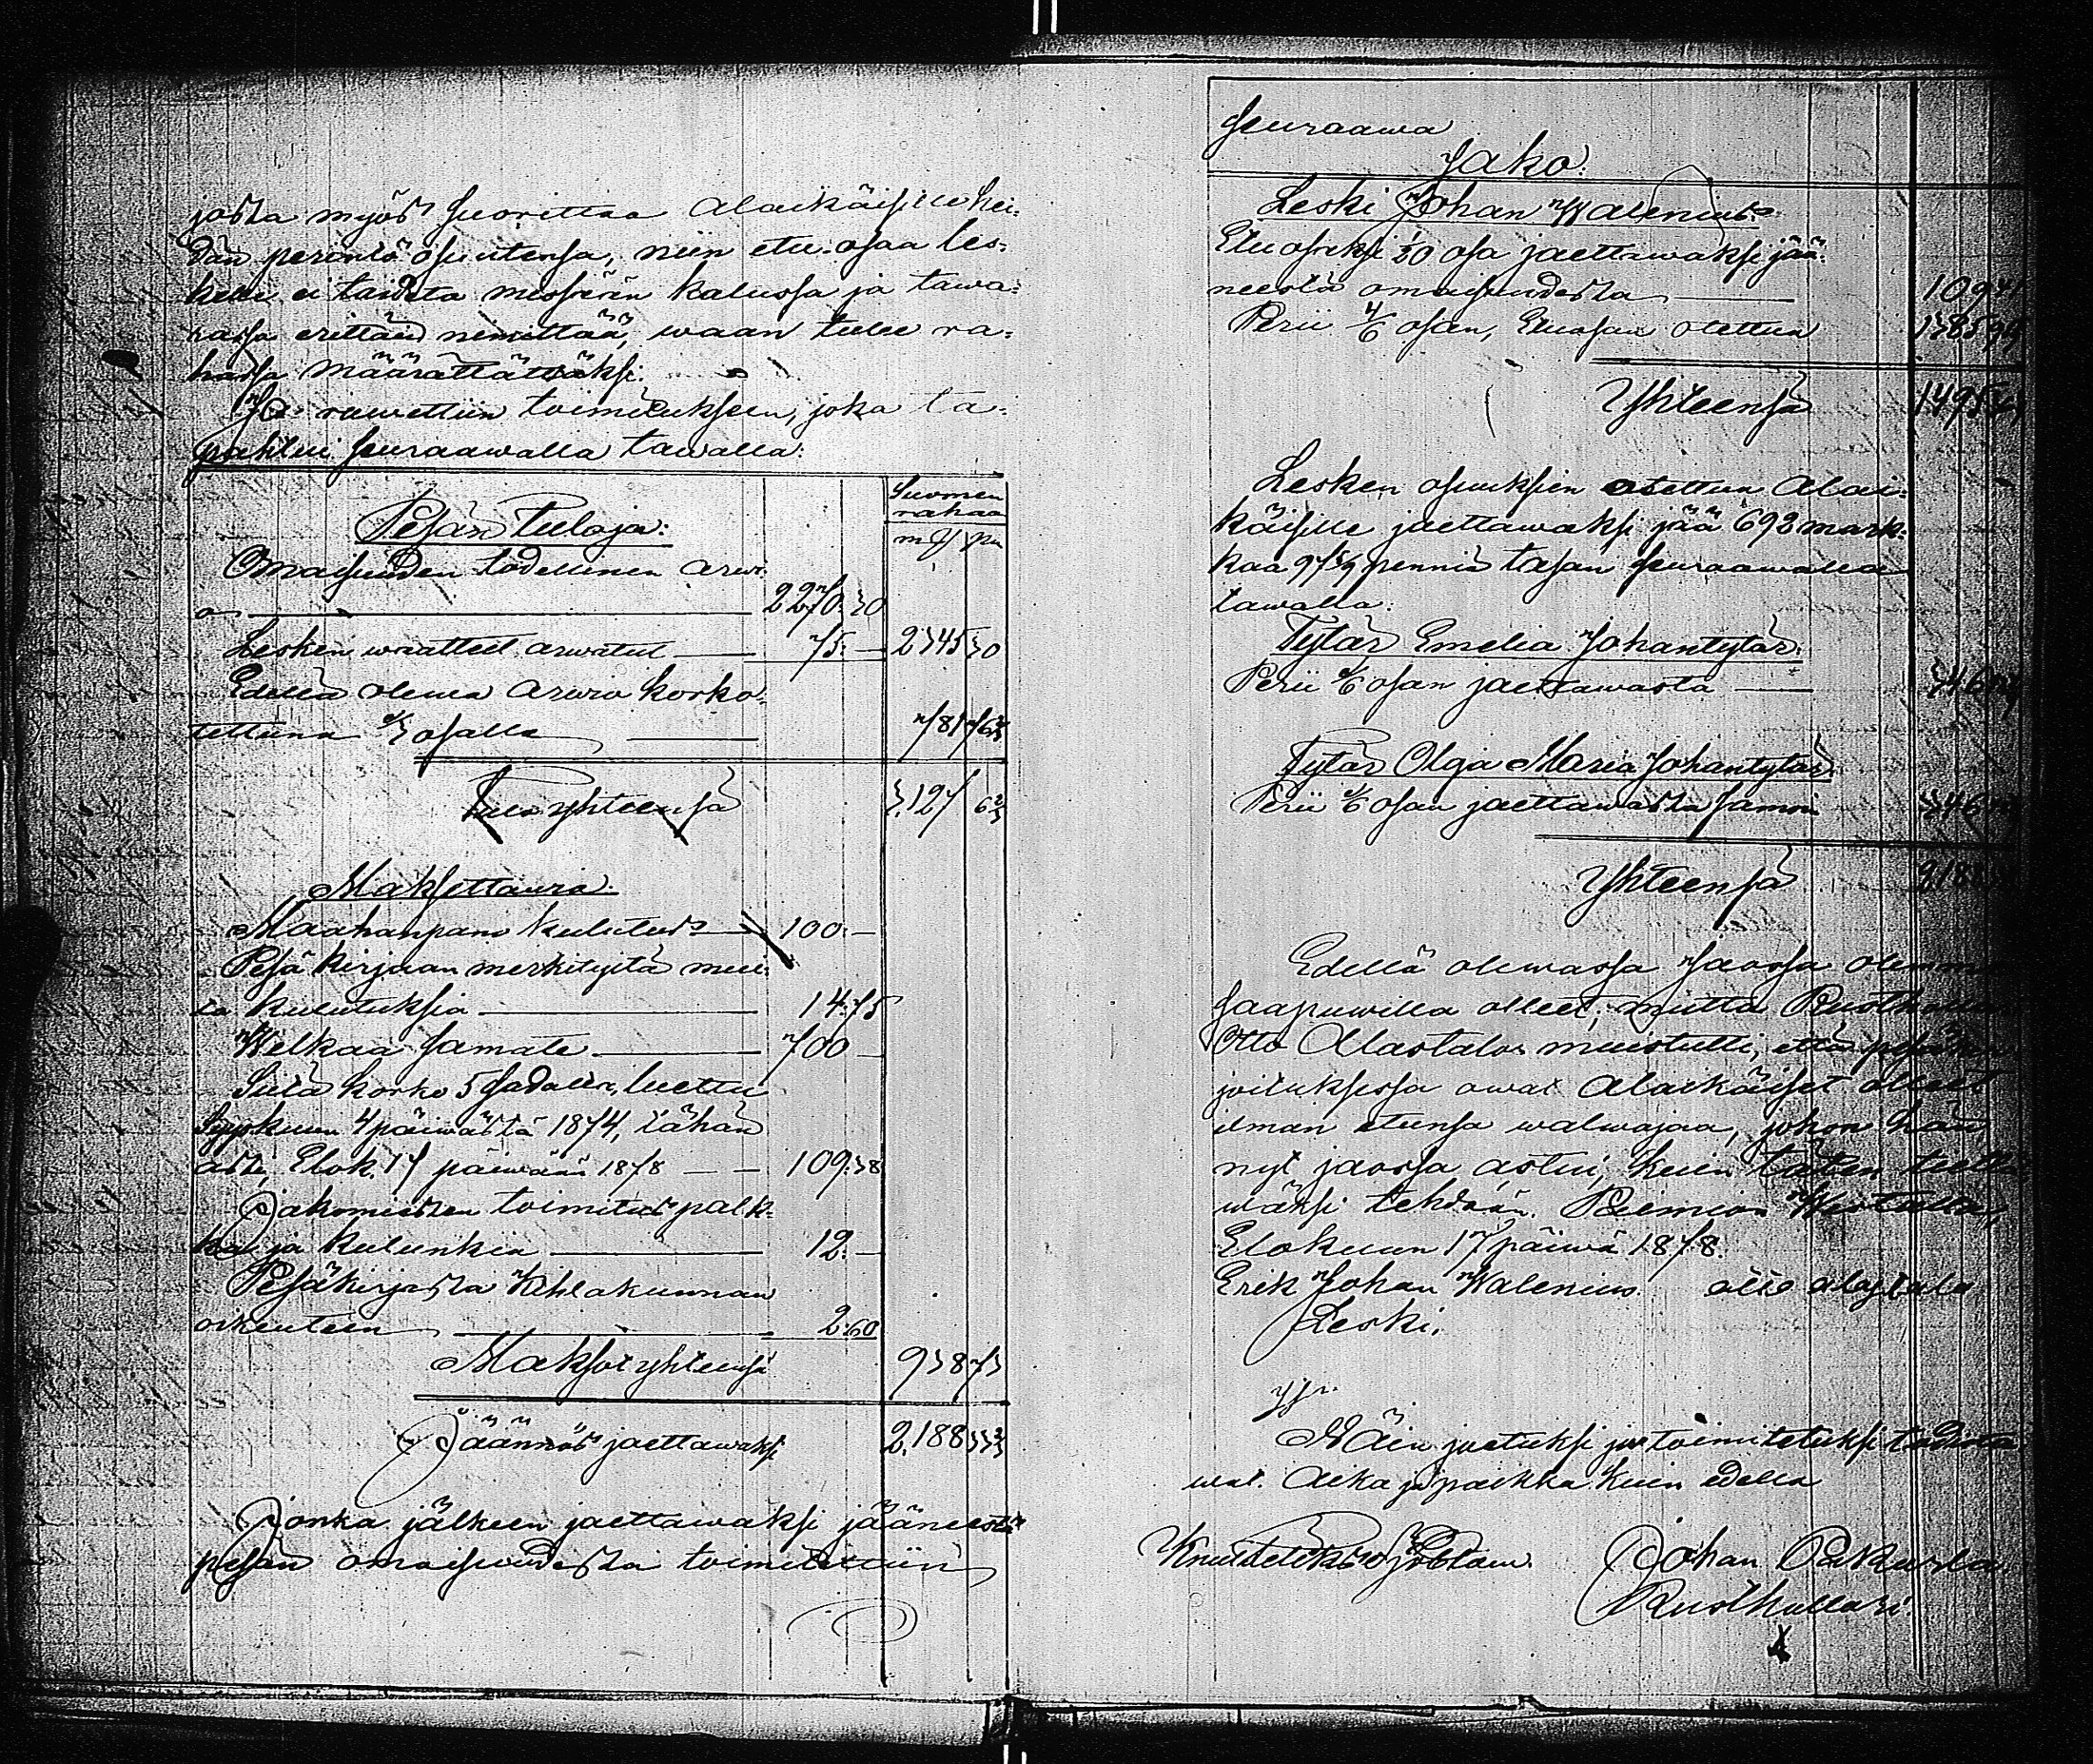 josta myös suorittaa alaikäisille hei-
dän perintö osuutensa, niin etu-osaa les-
kelle ei taideta missään kalussa ja tawa-
rassa erittäin nimittää, waan tulee ra-
hassa määrättäwäksi.
Jo ruwettiin toimitukseen, joka ta-
pahtui seuraawalla tawalla:
Suomen
rahaa
Pesän Tuloja:
m/ pn
Omaisuuden todellinen arwo
2270:30
Lesken waatteet arwatut 75:— 2345 30
Edellä olewa arwio korko-
tettuna 1/3 osalla 781 76 2/3
Tulo yhteensä 3,127 6 2/3
Maksettawia:
Maahanpano kulutus 100:—
Pesä kirjaan merkityitä mui-
ta kulutuksia 14:75
Welkaa samate 700 —
Siitä korko 5 sadalle, luettu
Syyskuun 4 päiwästä 1874, tähän
asti, Elok. 17 päiwään 1878 — — 109:38
Jakomiesten toimitus palk-
ka ja kulunkia 12:—
Pesäkirjasta Kihlakunnan
oikeuteen 2:60
Maksot yhteensä 938 73
Jäännös jaettawaksi 2,188 33 2/3
Jonka jälkeen jaettawaksi jääneestä
pesän omaisuudesta toimitettiin
seuraawa
Jako:
Leski Johan Walenius
Etu osaksi 1/20 osa jaettawaksi jää-
neestä omaisuudesta 109 41
Perii 4/6 osan, Etuosan otettua 1385 99
Yhteensä 1495
Lesken osuuksien otettua Alai-
käisille jaettawaksi jää 692 mark-
kaa penniä tasan seuraawalla
tawalla:
Tytär Emelia Johantytär.
Perii 1/6 osan jaettawasta 346
Tytär Olga Maria Johantytär.
Perii 1/6 osan jaettawasta samoin 346
Yhteensä 2188
Edellä olewassa Jaossa olemme
saapuwilla olleet; mutta Rusthollari
Otto Alastalo muistutti, että pesän
joituksessa owat Alaikäiset olleet
ilman etunsa walwojaa, johon hän
nyt jaossa astui, kuin täten
wäksi tehdään. Paimion Wistalla,
Elokuun 17 päiwä 1878.
Erik Johan Walenius otto alastalo
Leski.
Näin jaetuksi ja toimitetuksi todista-
wat. Aika ja paikka kuin edellä
Johan Pakurla
Rusthollari